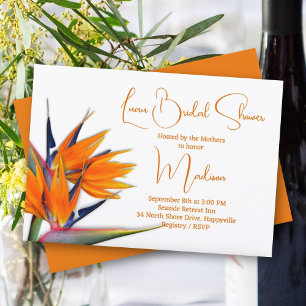 Luau Bridal Shower
Hosted by the Mothers
to honor
Madison
September 8th at 3:00 PM
Seaside Retreat Inn
34 North Shore Drive, Happyville
Registry / RSVP